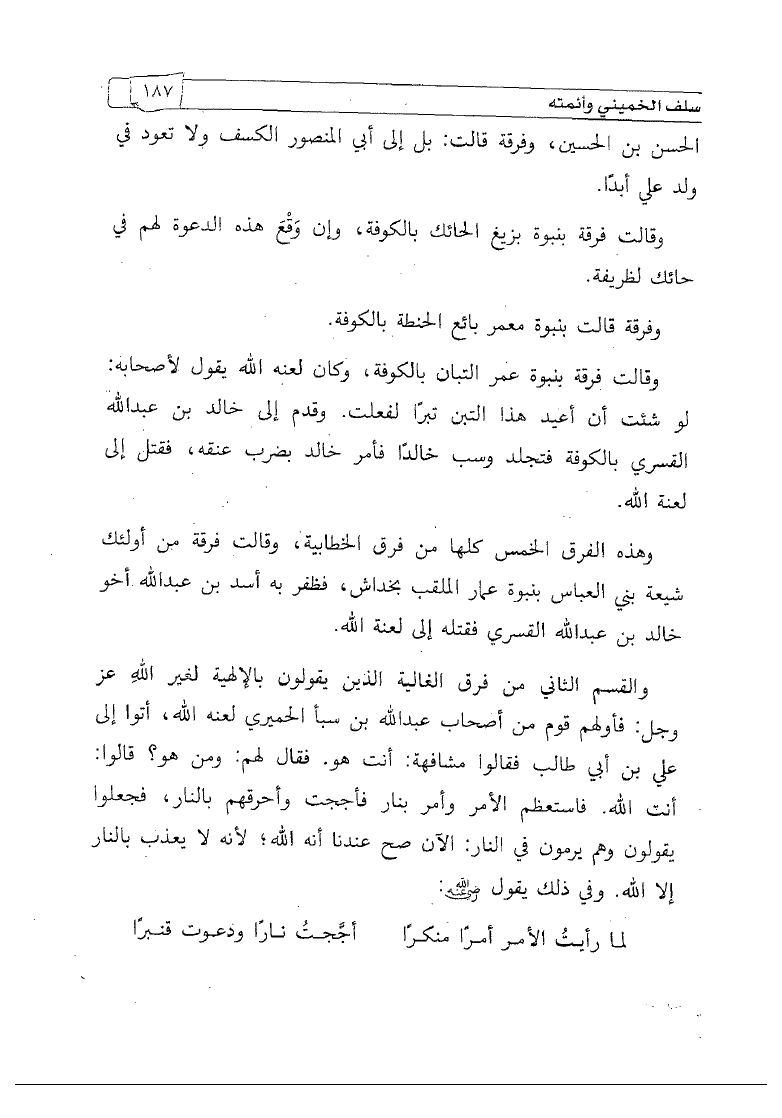 سلف الخميني وأئمته
١٨٧
الحسن بن الحسين، وفرقة قالت: بل إلى أبي المنصور الكسف ولا تعود في
ولد علي أبدًا.
وقالت فرقة بنبوة بزيغ الحائك بالكوفة، وإن وَقْعَ هذه الدعوة لهم في
حائك لظريفة.
وفرقة قالت بنبوة معمر بائع الحنطة بالكوفة.
وقالت فرقة بنبوة عمر التبان بالكوفة، وكان لعنه الله يقول لأصحابه:
لو شئت أن أعيد هذا التبن تبرًا لفعلت. وقدم إلى خالد بن عبدالله
القسري بالكوفة فتجلد وسب خالدًا فأمر خالد بضرب عنقه، فقتل إلى
لعنة الله.
وهذه الفرق الخمس كلها من فرق الخطابية، وقالت فرقة من أولئك
شيعة بني العباس بنبوة عمار الملقب بخداش، فظفر به أسد بن عبدالله أخو
خالد بن عبدالله القسري فقتله إلى لعنة الله.
والقسم الثاني من فرق الغالية الذين يقولون بالإلهية لغير اللهِ عز
وجل: فأولهم قوم من أصحاب عبدالله بن سبأ الحميري لعنه الله، أتوا إلى
علي بن أبي طالب فقالوا مشافهة: أنت هو. فقال لهم: ومن هو؟ قالوا:
أنت الله. فاستعظم الأمر وأمر بنار فأججت وأحرقهم بالنار، فجعلوا
يقولون وهم يرمون في النار: الآن صح عندنا أنه الله؛ لأنه لا يعذب بالنار
إلا الله. وفي ذلك يقول رضي الله عنه:
لما رأيتُ الأمر أمرًا منكرًا أجَّجتُ نارًا ودعوت قنبرًا